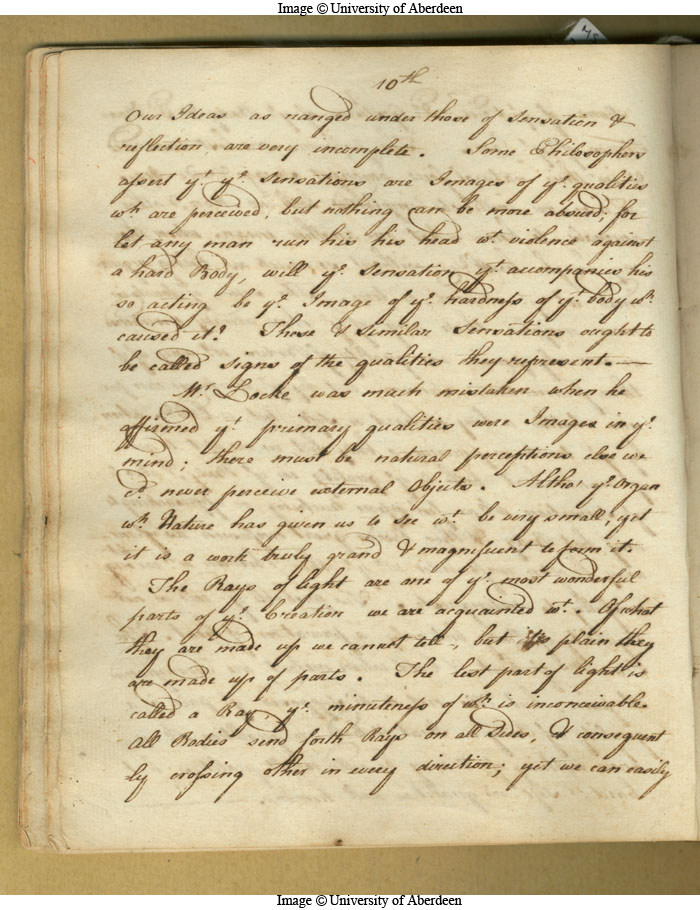 Image © University of Aberdeen
10th
Our Ideas as ranged under those of sensation &
reflection, are very incomplete. Some Philosophers
assert yt. ye. sensations are Images of ye. qualities
wh. are perceived, but nothing can be more absurd; for
let any man run his his head wt. violence against
a hard Body, will ye. sensation yt. accompanies his
so acting be ye. Image of ye. hardness of ye. body wh.
caused it? These & similar sensations ought to
be called signs of the qualities they represent. —
Mr. Locke was much mistaken when he
affirmed yt. primary qualities were Images in ye.
mind; there must be natural perceptions else we
cd. never perceive external Objects. Altho' ye. Organ
wh. Nature has given us to see wt. be very small, yet
it is a work truly grand & magnificent to form it.
The Rays of light are one of ye. most wonderful
parts of ye. Creation we are acquainted wt. Of what
they are made up we cannot tell, but its plain they
are made up of parts. The lest part of light is
called a Ray, ye. minuteness of wh. is inconceivable.
All Bodies send forth Rays on all Sides, & consequent
ly crossing other in every direction; yet we can easily
Image © University of Aberdeen